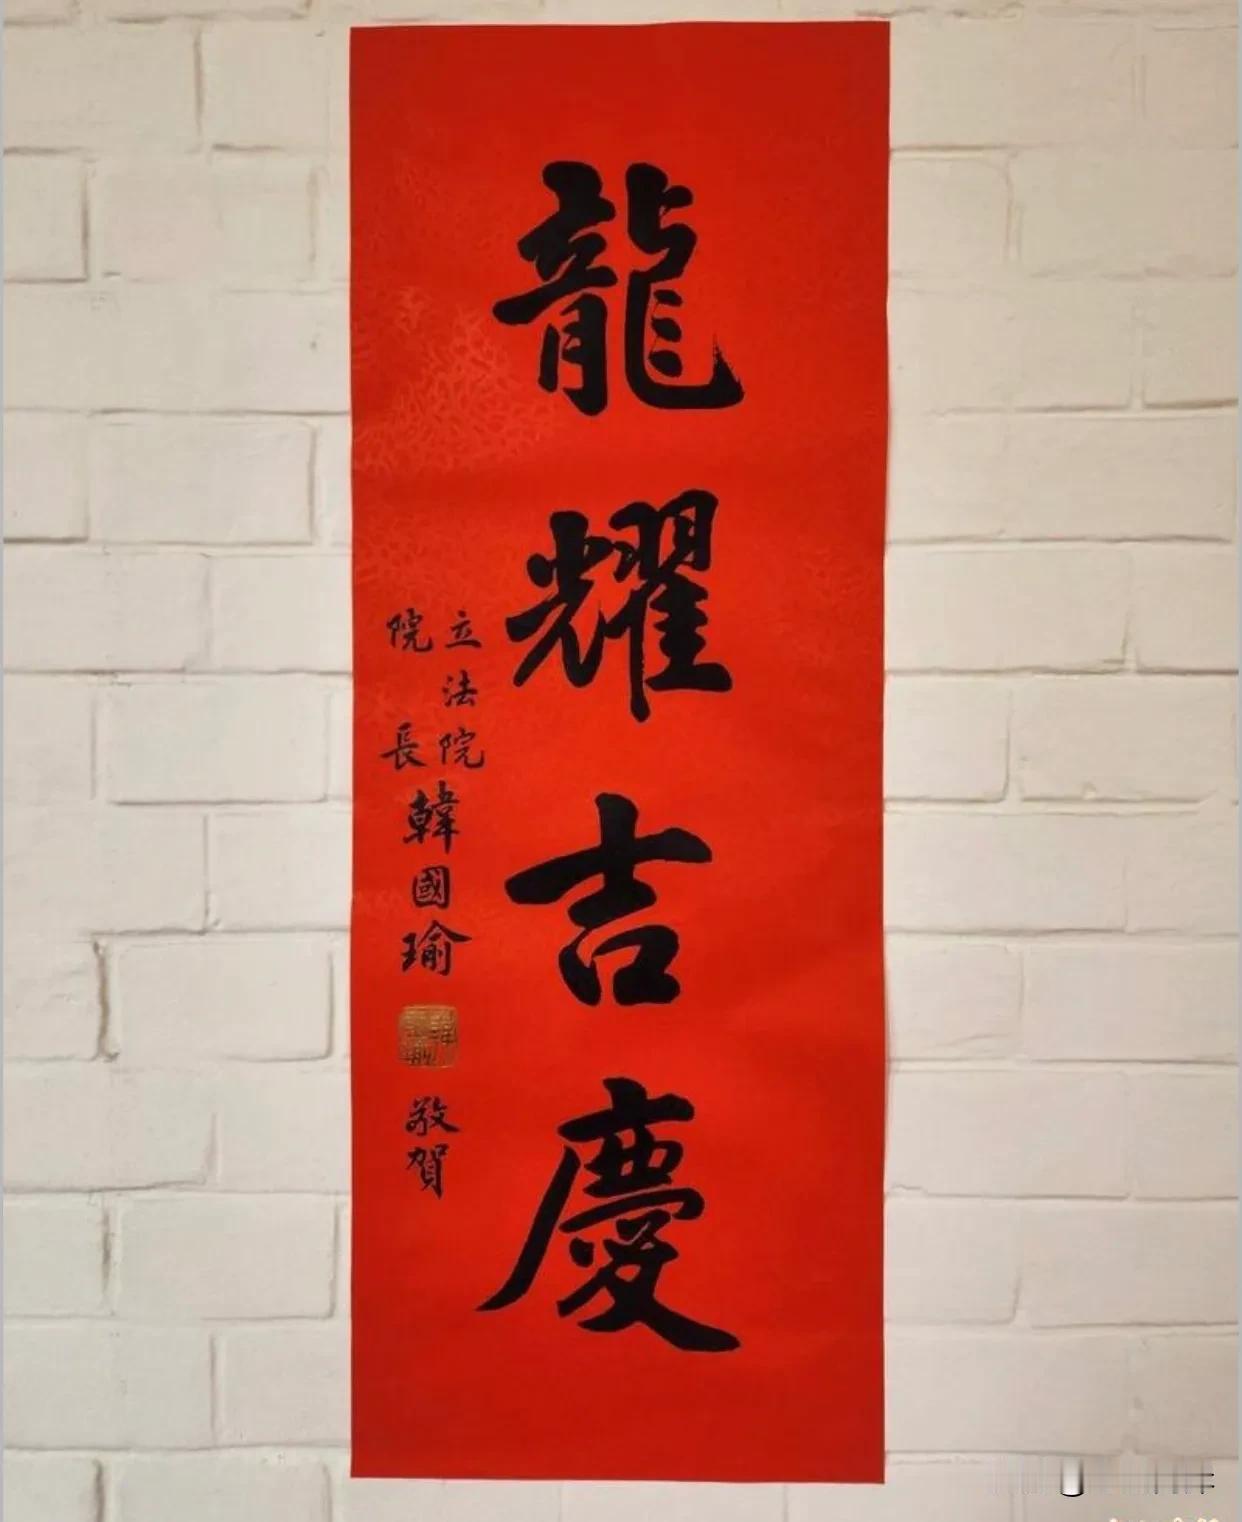 龍耀吉慶
立法院
院長
韓國瑜
敬賀